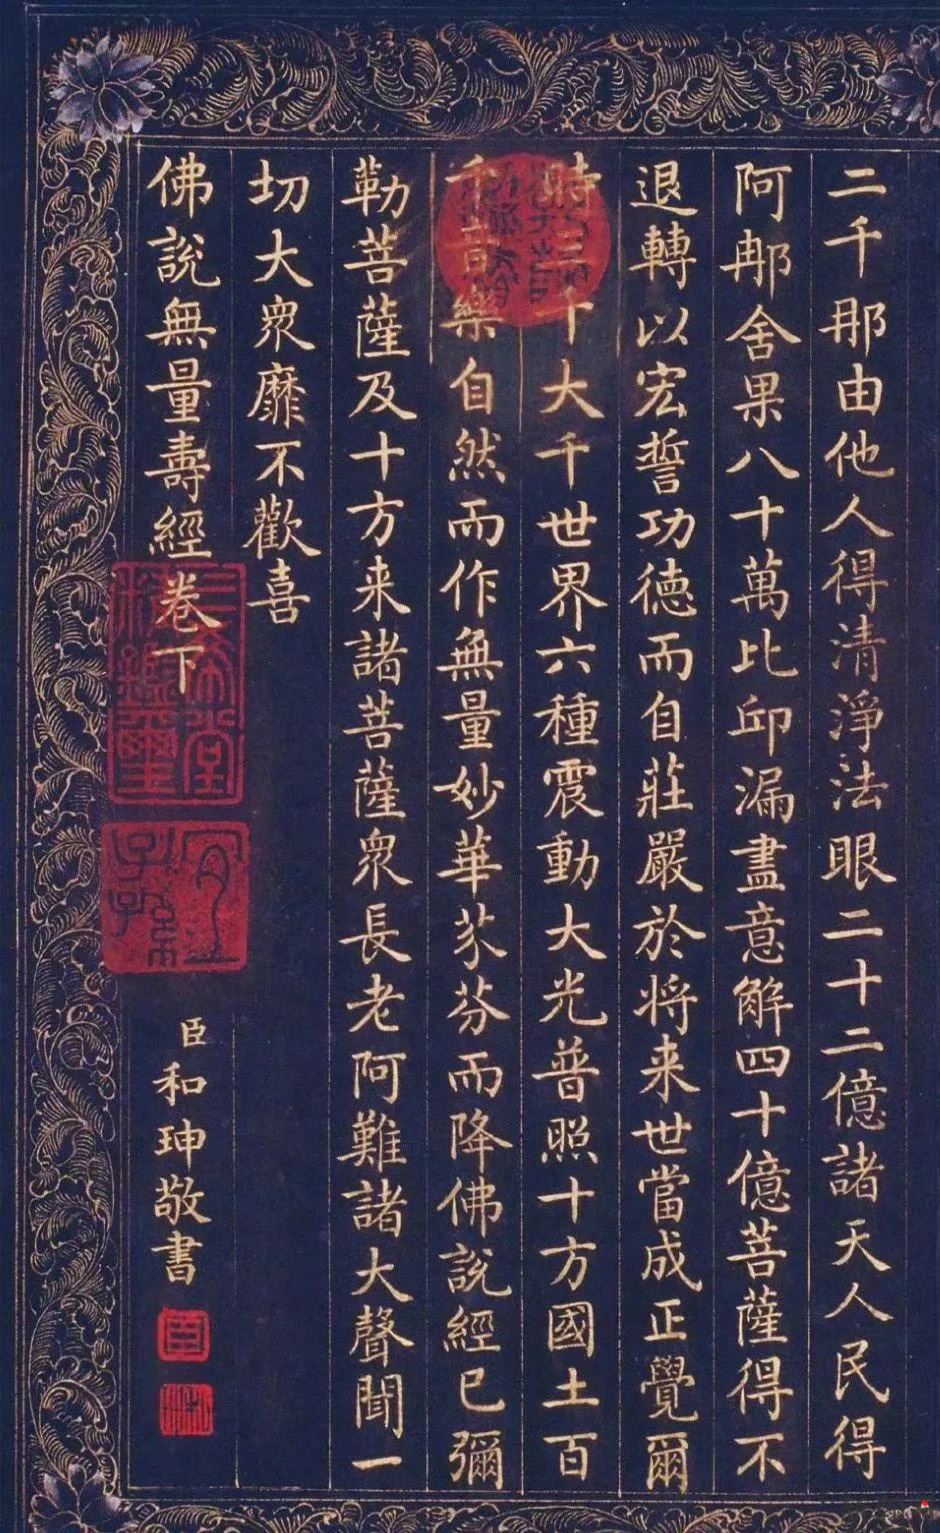 二千那由他人得清淨法眼二十二億諸天人民得
阿那舍果八十萬比邱漏盡意解四十億菩薩得不
退轉以宏誓功德而自莊嚴於將来世當成正覺爾
時三千大千世界六種震動大光普照十方國土百
千音樂自然而作無量妙華芬芬而降佛說經已彌
勒菩薩及十方来諸菩薩衆長老阿難諸大聲聞一
切大衆靡不歡喜
佛說無量壽經卷下
三希堂精鑑璽
宜子孫
臣和珅敬書
臣